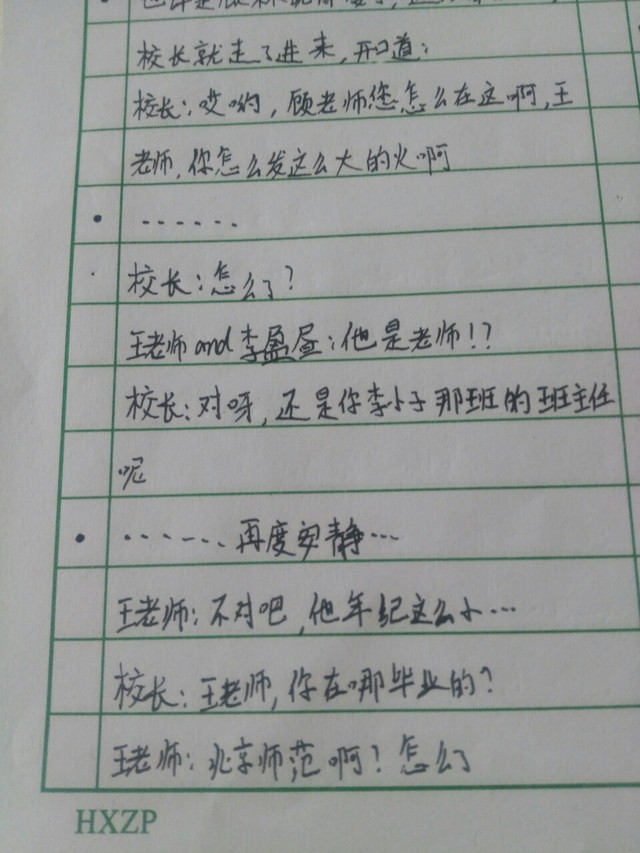 校长就走了进来,开口道:
校长:哎哟,顾老师您怎么在这啊,王
老师,你怎么发这么大的火啊
······
校长:怎么了?
王老师and李盈昼:他是老师!?
校长:对呀,还是你李小子那班的班主任
呢
·······再度安静···
王老师:不对吧,他年纪这么小···
校长:王老师,你在哪毕业的?
王老师:北京师范啊?怎么了
HXZP